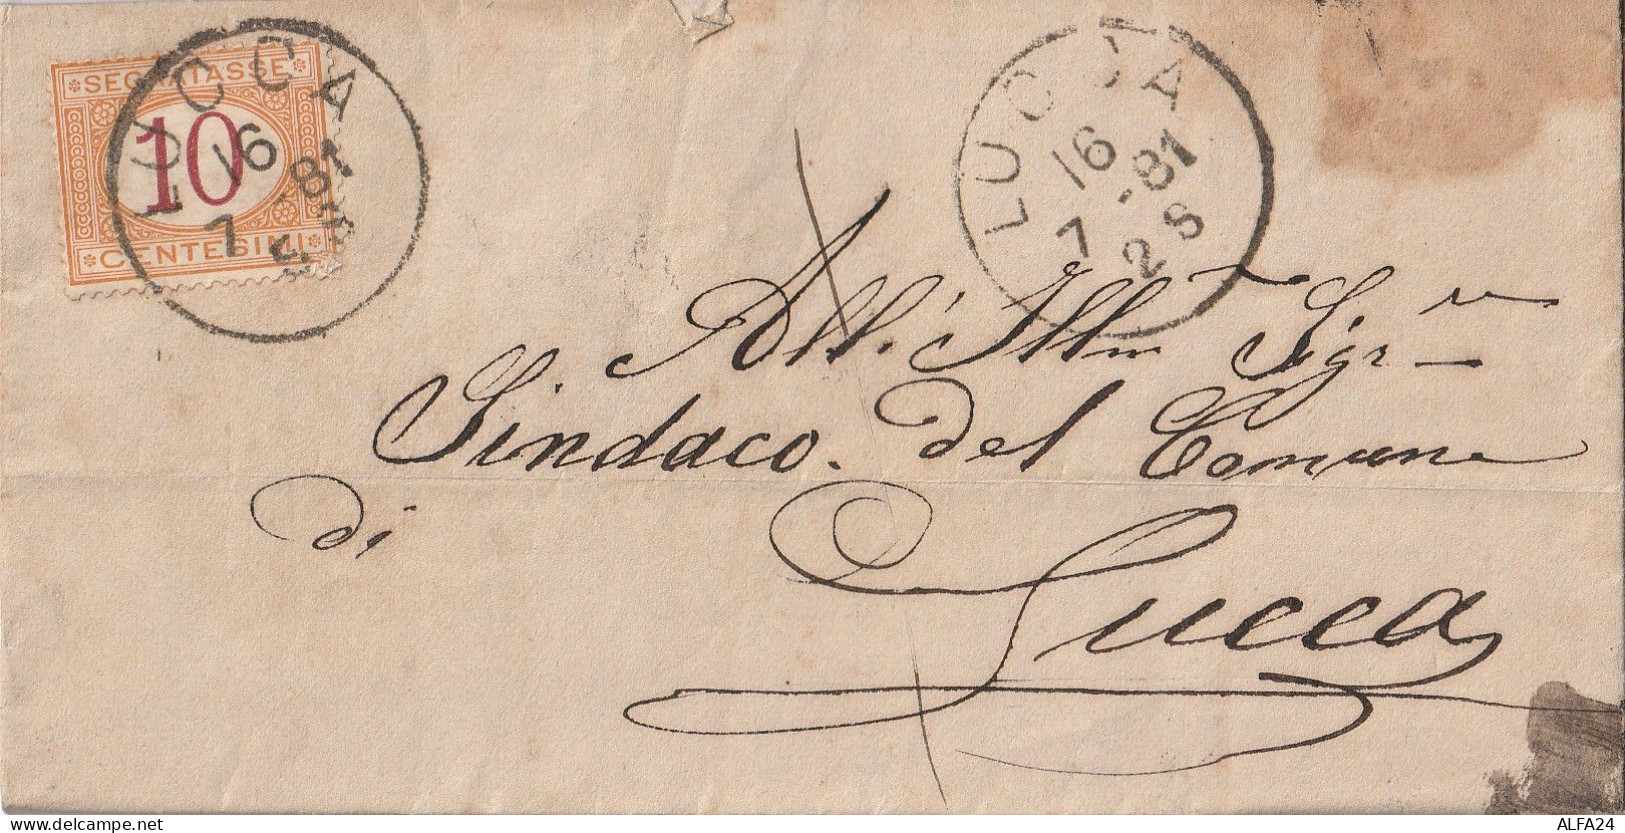 SEGNATASSE
10
CENTESIMI
LUCCA
16
7 - 81
LUCCA
16
7 - 81
2 S
All' Illm Sigr
Sindaco del Comune
di
Lucca
delcampe.net
ALFA24